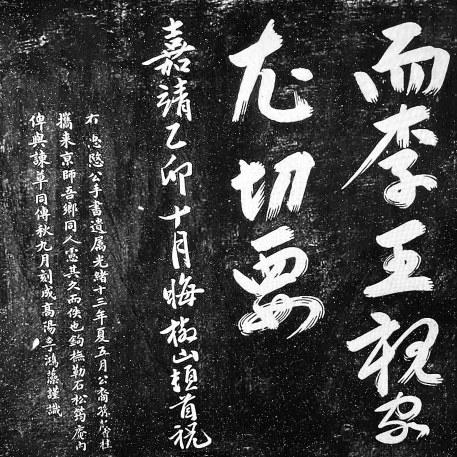 而李王視
尤切要
嘉靖乙卯十月晦椒山頓首祝
右忠愍公手書遺屬光緒十三年夏五月公裔孫桂
攜來京師吾鄉同人慮其久而佚也鈎橅勒石松筠庵內
俾與諫草同傳秋九月刻成高陽李鴻藻謹識